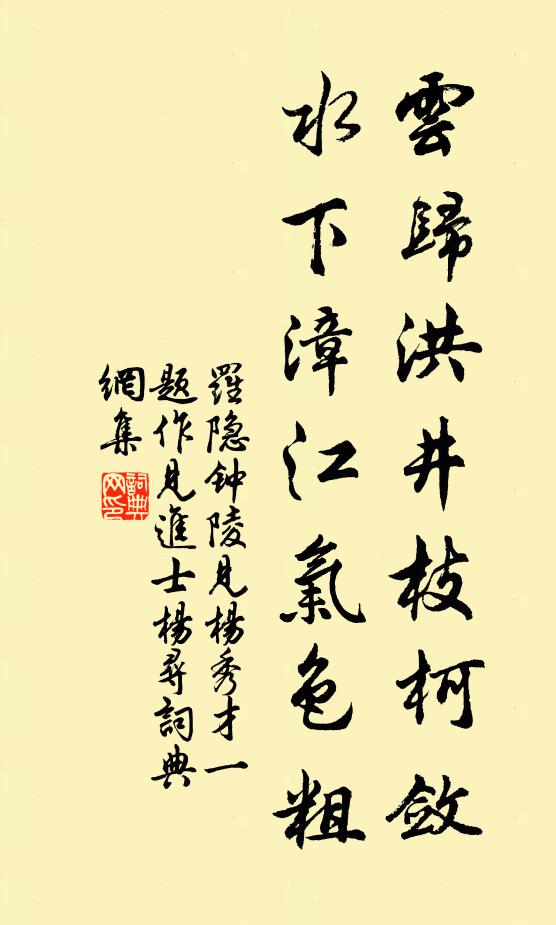 雲歸洪井枝柯斂
水下漳江氣色粗
羅隐鈡陵見楊秀才一
題作見進士楊尋詞典
網集
詞典
网印